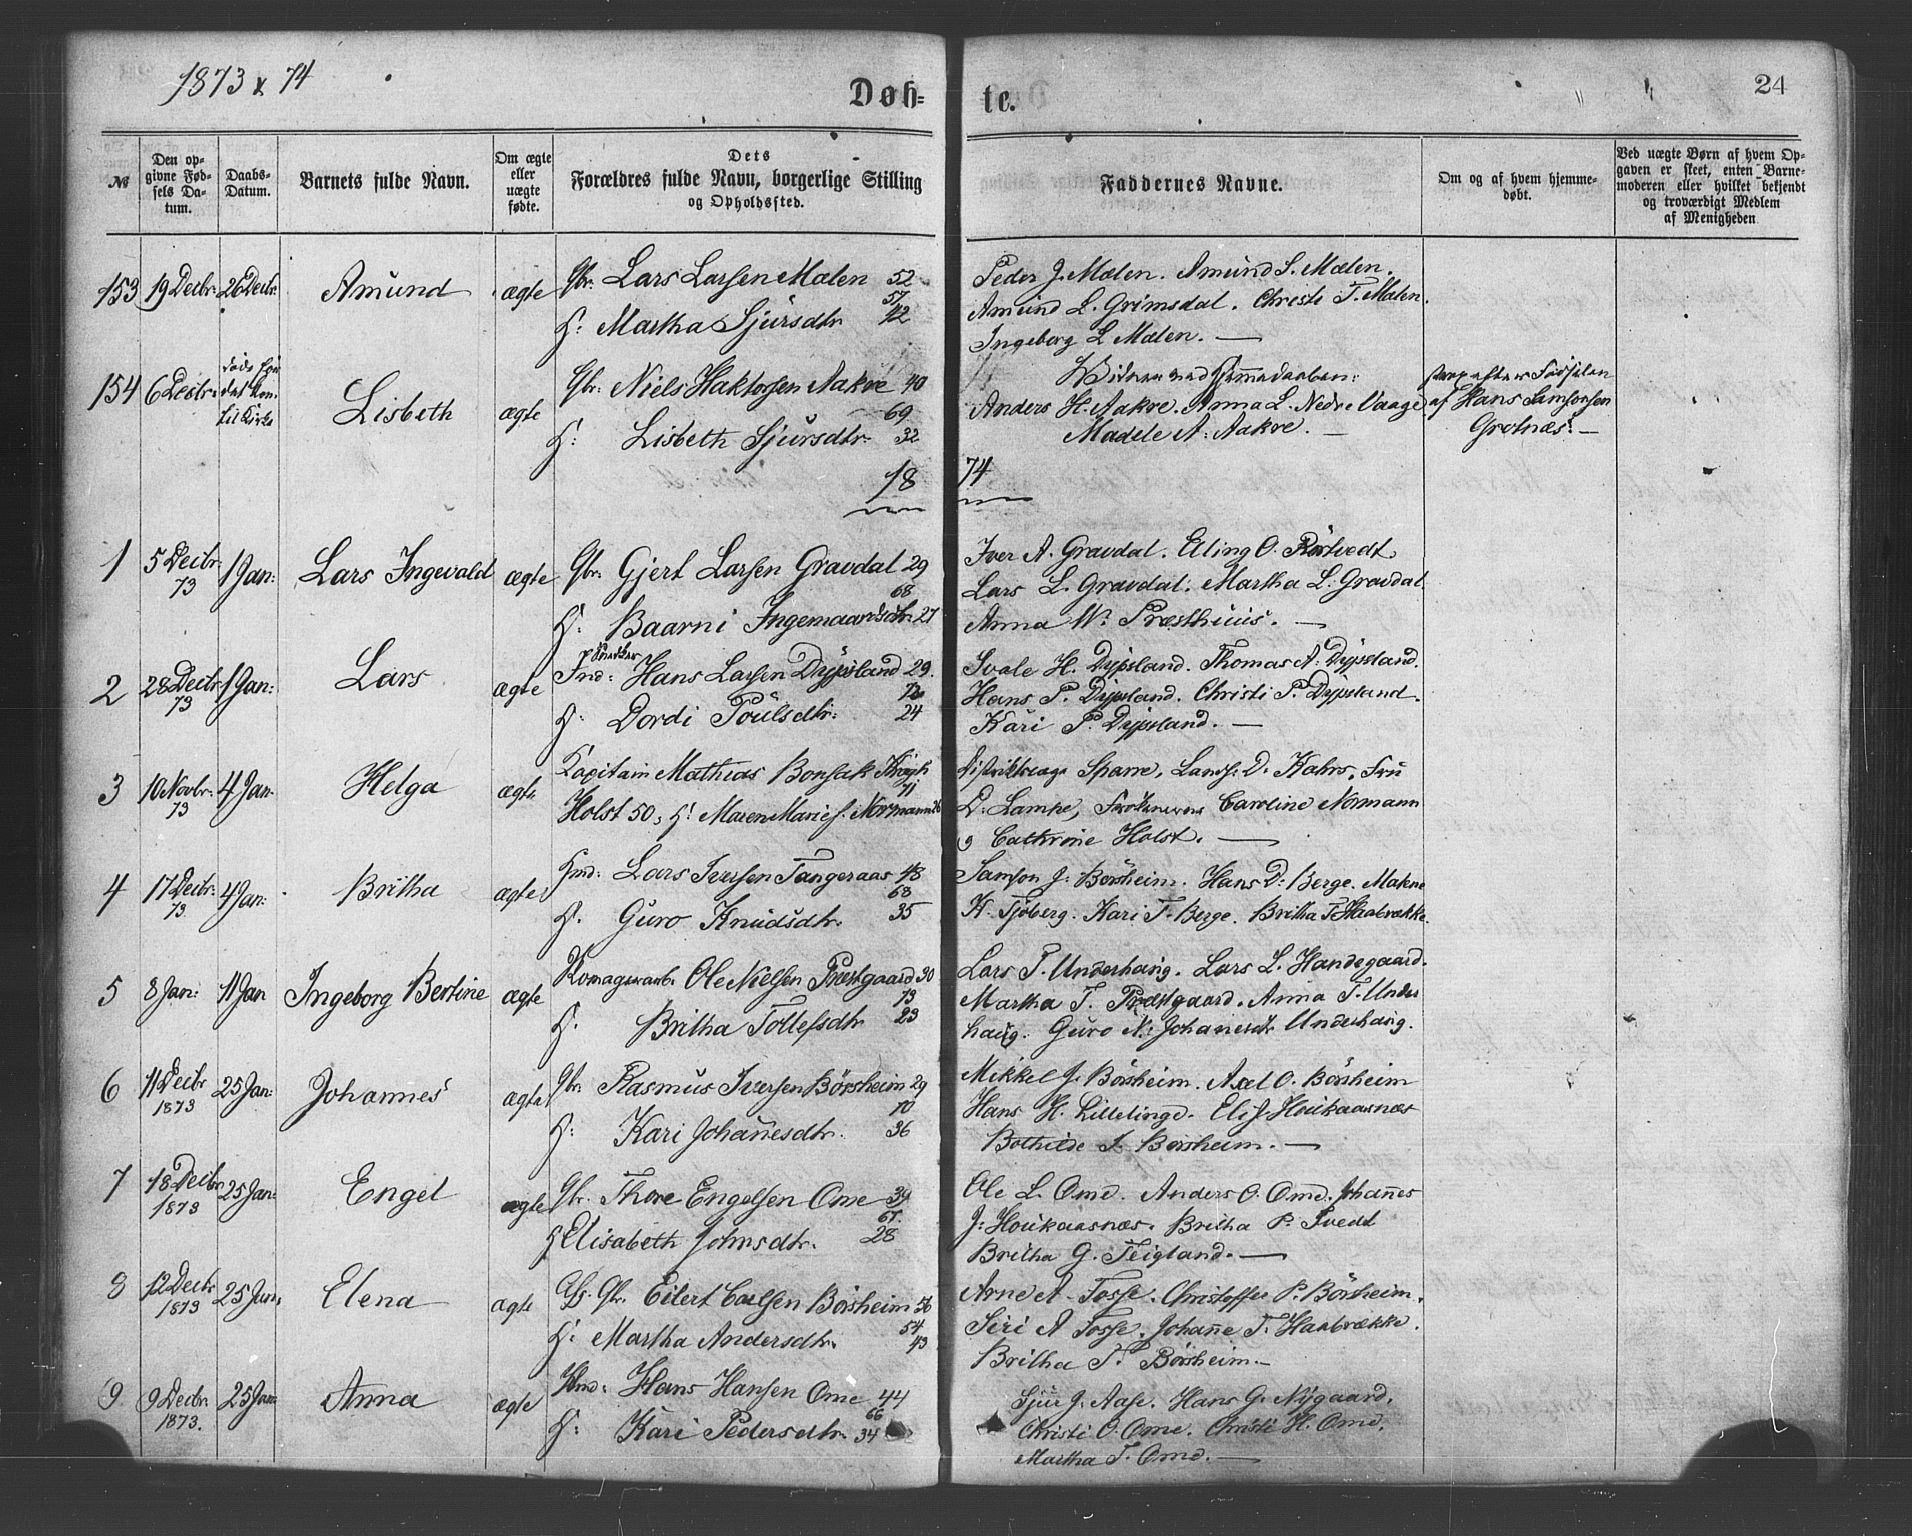 1873 & 74
Døb-
te.
24
№
Den op-
givne Fød-
sels Da-
tum.
Daabs-
Datum.
Barnets fulde Navn.
Om ægte
eller
uægte
fødte.
Dets
Forældres fulde Navn, borgerlige Stilling
og Opholdssted.
Faddernes Navne.
Om og af hvem hjemme-
døbt.
Ved uægte Børn af hvem Op-
gaven er skeet, enten Barne-
moderen eller hvilket bekjendt
og troværdigt Medlem
af Menigheden
153 19 Decbr. 26 Decbr. Amund ægte Gbr. Lars Larsen Mælen 52
57
H: Martha Sjursdtr 42
Peder J. Mælen. Amund S. Mælen.
Amund L. Grimsdal. Christi T. Mælen.
Ingeborg L Mælen. —
154 6 Decbr. døde før
det kom
til Kirke
Lisbeth ægte Gbr. Niels Haktorsen Aakre 40
69
H: Lisbeth Sjursdtr. 32
Vidner ved Hjemmedaaben:
Anders H. Aakre. Anna L. Nedre Vaage
Madele A. Aakre. —
strax efter Fødselen
af Hans Samsonsen
Grotnæs. —
18 74
1 5 Decbr. 73 1 Jan: Lars Ingevald ægte Gbr. Gjert Larsen Gravdal 29
68
H. Baarni Ingemaardsdtr. 27
Iver A. Gravdal. Elling O. Røstvedt.
Lars L. Gravdal. Martha L. Gravdal
Anna N. Præsthuus. —
2 28 Decbr. 73 1 Jan: Lars ægte Ind: Hans Larsen Dypsland 29.
73
H. Dordi Poulsdtr. 24
Svale H. Dypsland. Thomas A. Dypsland.
Hans P. Dypsland. Christi P. Dypsland.
Kari P. Dypsland. —
3 10 Novbr. 73 4 Jan. Helga ægte Kapitain Mathias Bonsak Krogh
71
Holst 50, H! Maren Marie f. Normann
Distriktslæge Sparre, Landh: D. Kahrs, Fru
D. Lampe, Frøknerne Caroline Normann
o Cathrine Holst. —
4 17 Decbr. 73 4 Jan: Britha ægte Hmd: Lars Iversen Tangeraas 48
68
H. Guro Knudsdtr. 35
Samson J. Børsheim. Hans D. Berge. Malene
K. Tjoberg. Kari T. Berge. Britha T Haabrække.
5 8 Jan: 11 Jan Ingeborg Bertine ægte Komagerarb. Ole Nielsen Præstgaard 30
73
H. Britha Tollefsdtr. 23
Lars P. Underhaug. Lars L. Handegaard.
Martha T. Præstgaard. Anna T. Under
haug. Guro N. Johanesdtr Underhaug.
6 11 Decbr 1873 25 Jan: Johannes ægte Gbr. Rasmus Iversen Børsheim 29
70
H: Kari Johañesdtr. 36
Mikkel J. Børsheim. Axel O. Børsheim
Hans H. Lillelinge. Elis. Houkaasnæs
Bothilde I. Børsheim. —
7 18 Decbr 1873 25 Jan: Engel ægte Gbr. Thore Engelsen Ome 39
67.
H Elisabeth Johnsdtr. 28
Ole L. Ome. Anders O. Ome. Johañes
J. Houkaasnæs. Britha P. Tvedt
Britha G. Teigland. —
8 12 Decbr 1873 25 Jan: Elena ægte Gbr. Eilert Carlsen Børsheim 56
54
H. Martha Andersdtr. 43
Arne A. Fosse. Christoffer P. Børsheim.
Siri A Fosse. Johañe T. Haabrække.
Britha P. Børsheim. —
9 9 Decbr. 1873. 25 Jan. Anna ægte Hmd: Hans Hansen Ome 44
66
H: Kari Pedersdtr. 34
Sjur J. Aase. Hans G. Nygaard.
Christi O. Ome. Christi H. Ome.
Martha T. Ome. —